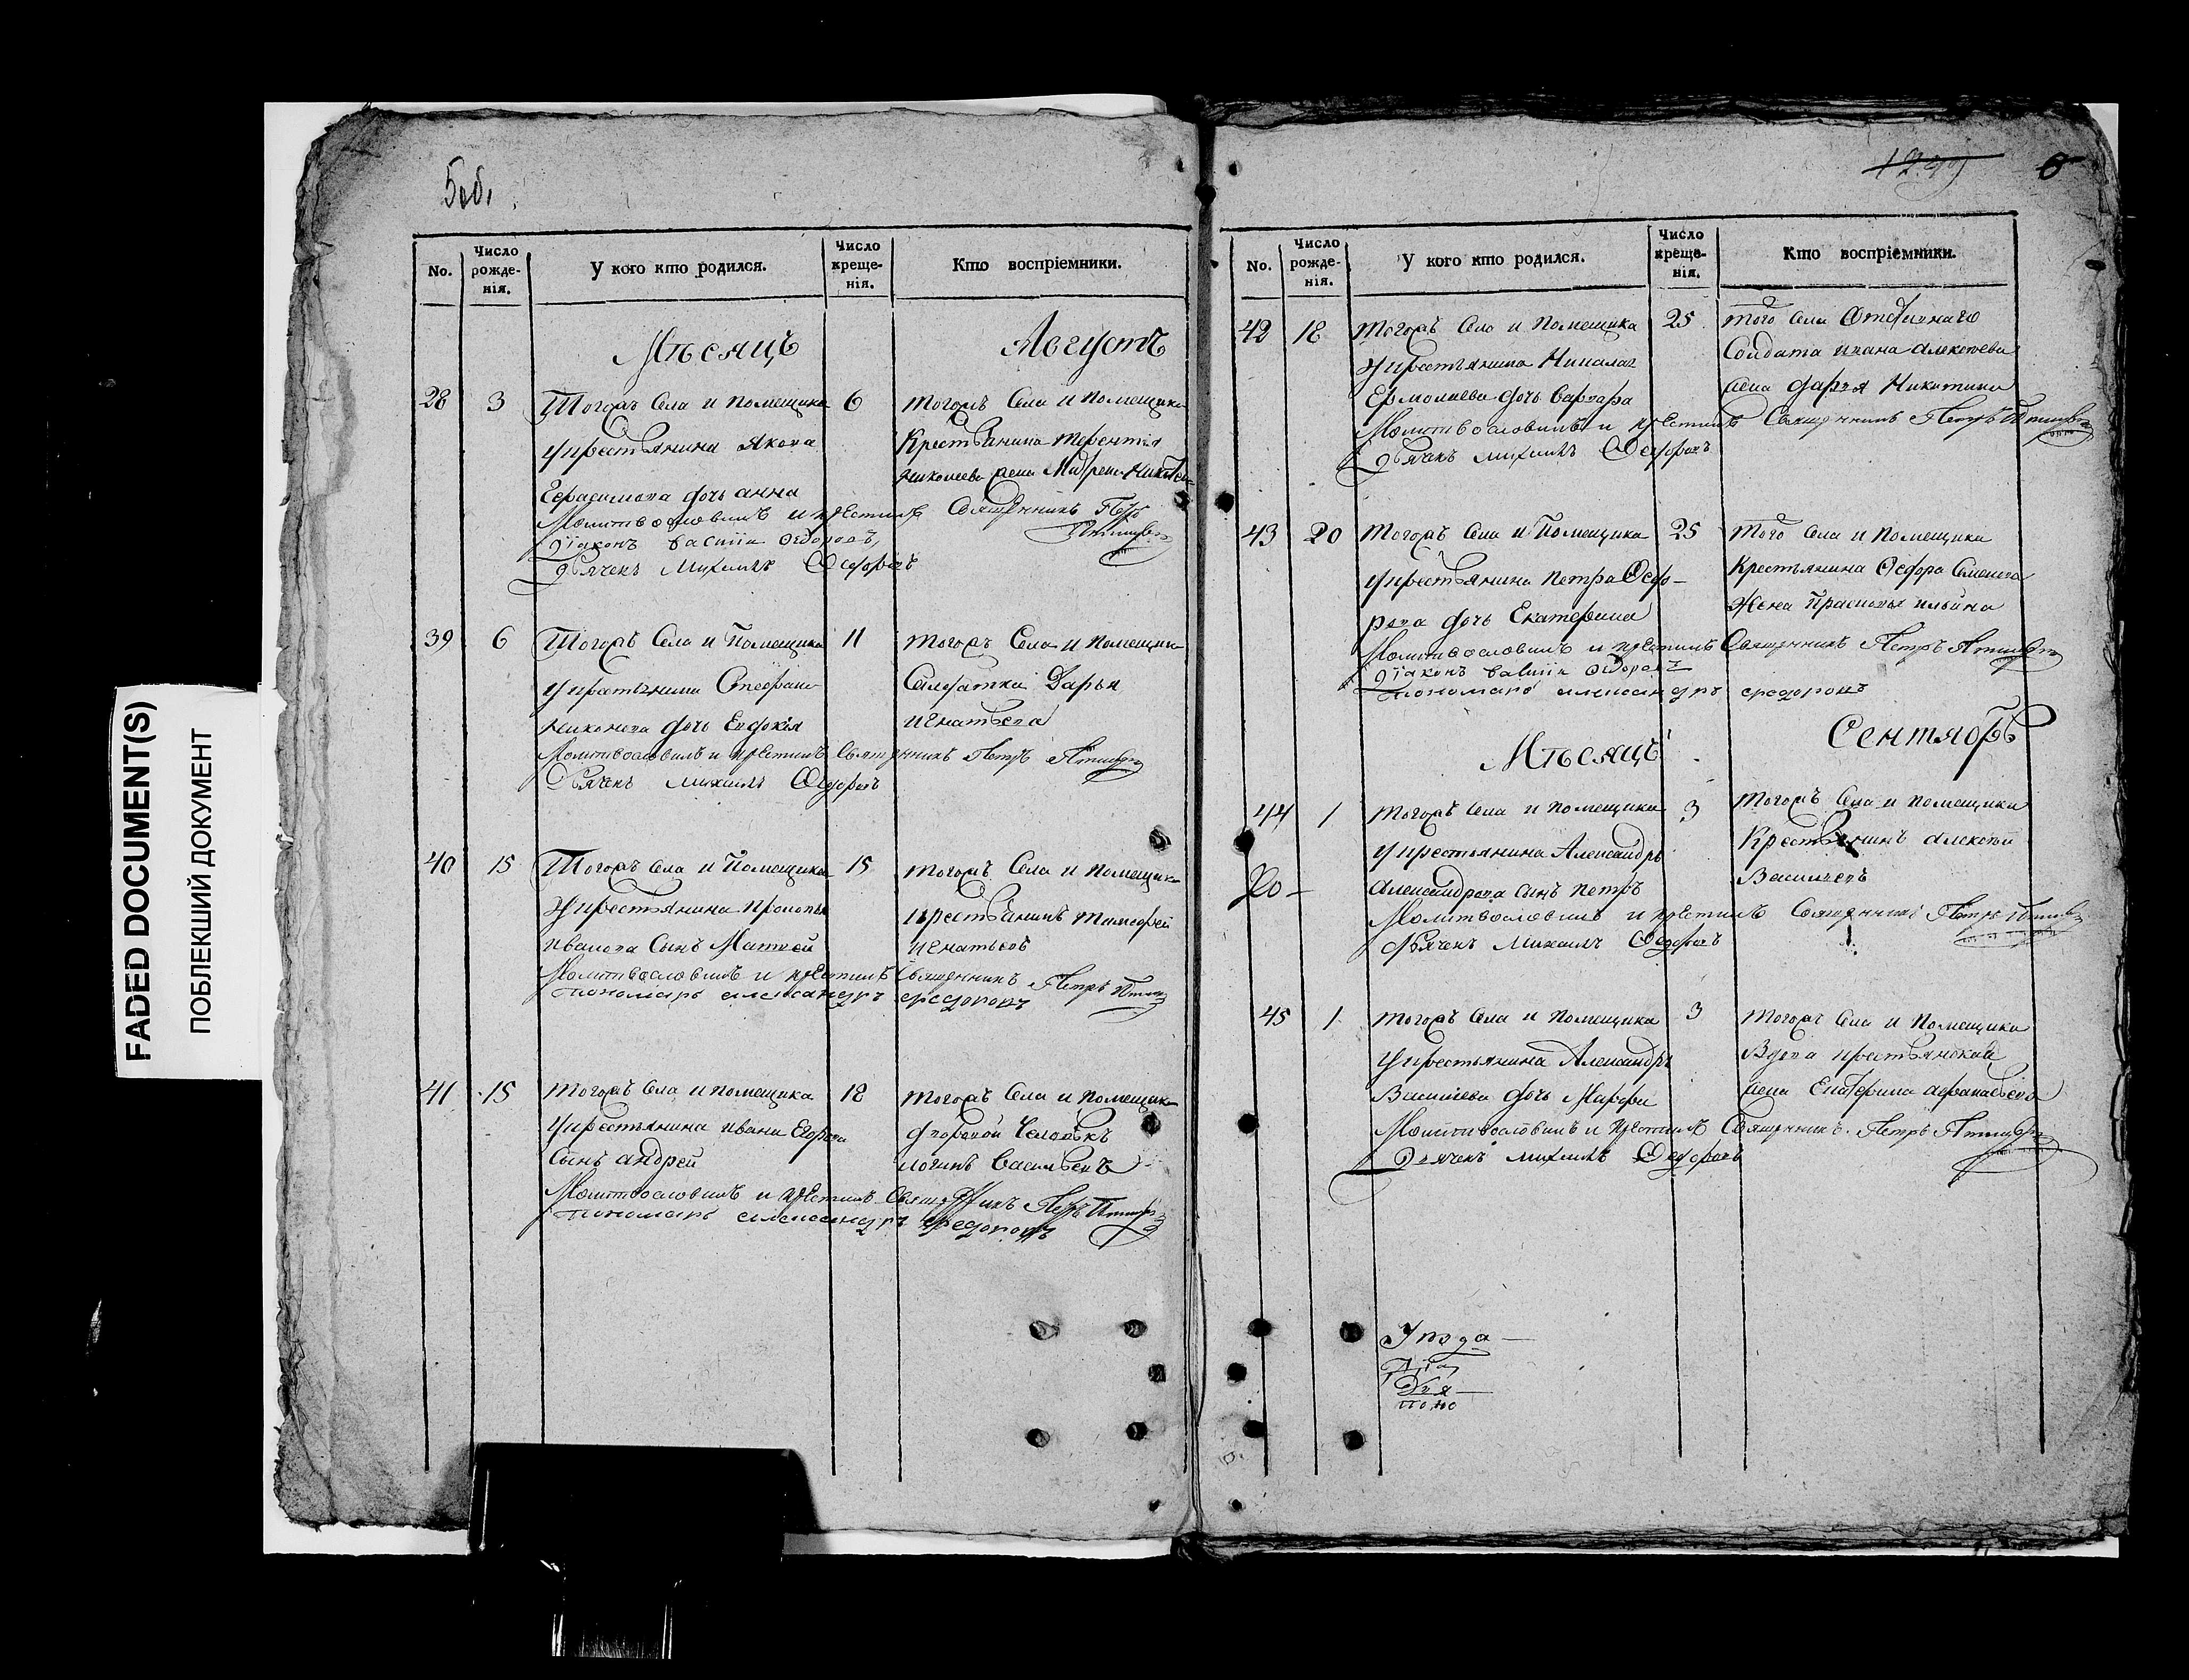 FADED DOCUMENT(S)
ПОБЛЕКШИЙ ДОКУМЕНТ
5об.
No. Число рожде- нія. У кого кто родился. Число креще- нія. Кто воспріемники.
Мѣсяцъ Августъ
28 3 Тогожъ села и помещика 6 тогожъ села и помещика
у крестьянина Якова крестьянина терентия
Герасимова дочь анна
Молитвословилъ и крестилъ Священникъ Петръ
діаконъ василiи Федоровъ
дьячекъ Михаилъ Федоровъ
39 6 Тогожъ села и помещика 11 тогожъ села и помещика
у крестьянина Стефана Салдатка Дарья
никонова дочь Евдокия игнатьева
Молитвословилъ и крестилъ Священникъ Петръ
Дьячекъ михаилъ Федоровъ
40 15 Тогожъ села и помещика 15 тогожъ села и помещика
у крестьянина прокопья крестьянинъ тимофей
иванова сынъ Матвей игнатьевъ
Молитвословилъ и крестилъ Священникъ Петръ
пономарь александръ федоровъ
41 15 тогожъ села и помещика 18 тогожъ села и помещика
у крестьянина ивана Егорова дворовой человѣкъ
сынъ андрей логинъ васильевъ
Молитвословилъ и крестилъ Священникъ Петръ
пономарь александръ федоровъ
1799 6
No. Число рожде- нія. У кого кто родился. Число креще- нія. Кто воспріемники.
42 18 тогожъ села и помещика 25 того села отставнаго
у крестьянина Николая солдата ивана алексеева
Ермолаева дочь варвара жена дарья Никитина
Молитвословилъ и крестилъ Священникъ Петръ
дьячекъ михаилъ Федоровъ
43 20 тогожъ села и помещика 25 того села и помещика
у крестьянина петра Федо- крестьянина Федора Семенова
рова дочь Екатерина жена Прасковья ильина
Молитвословилъ и крестилъ Священникъ Петръ
діаконъ василiи Федоровъ
пономарь александръ федоровъ
Мѣсяцъ Сентябрь
44 1 тогожъ села и помещика 3 тогожъ села и помещика
у крестьянина Александра крестьянинъ алексѣй
александрова сынъ петръ Васильевъ
Молитвословилъ и крестилъ Священникъ Петръ
дьячекъ михаилъ Федоровъ
45 1 тогожъ села и помещика 3 тогожъ села и помещика
у крестьянина Александра Вдова крестьянская
Васильева дочь Марфа жена Екатерина афанасьева
Молитвословилъ и крестилъ Священникъ Петръ
дьячекъ михаилъ Федоровъ